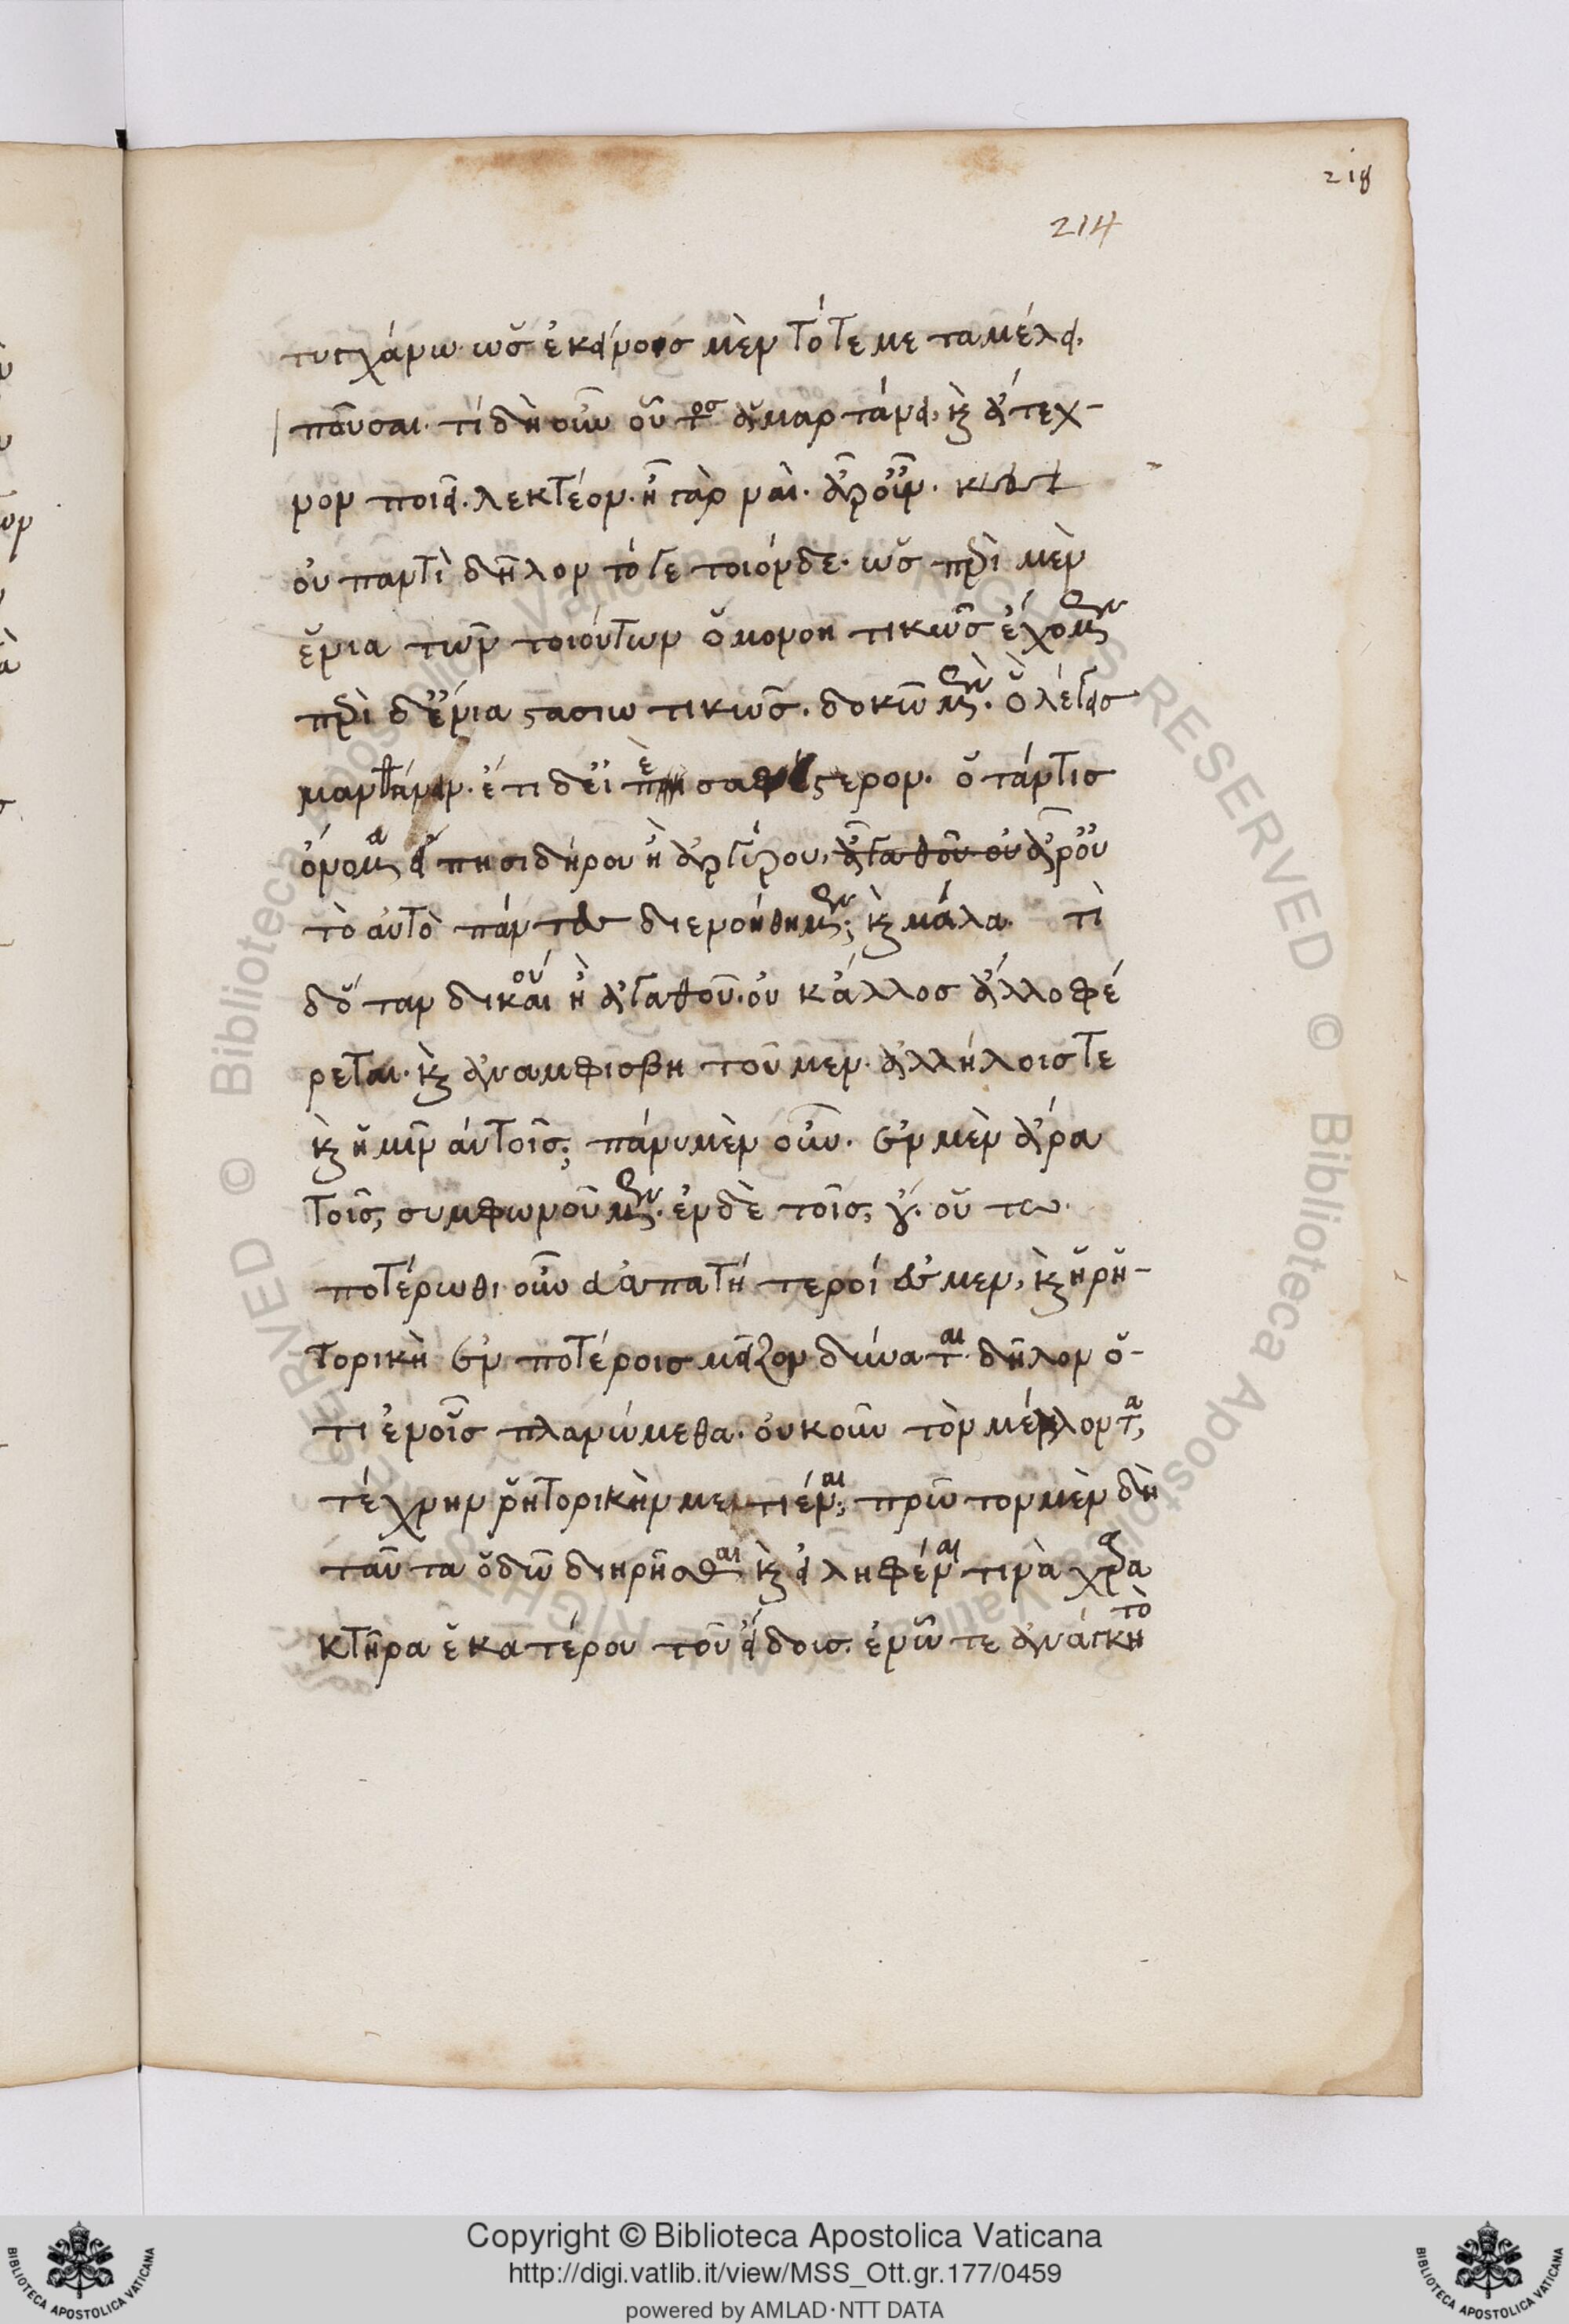 218
214
τυγχάνω· ὡς ἐκείνοις μὲν τότε μεταμέλει,
παῦσαι. τί δὴ οὖν οὗτος ἁμαρτάνει, κ ἄτεχ-
νον ποιεῖ. λεκτέον. ἦ γὰρ ναί. ἆρ οὖν.
οὐ παντὶ δῆλον τό γε τοιόνδε· ὡς περὶ μὲν
ἔνια τῶν τοιούτων ὁμονοητικῶς ἔχομεν
περὶ δ' ἔνια στασιωτικῶς. δοκῶ μὲν. ὃ λέγεις
μανθάνειν. ἔτι δ' εἰπὲ σαφέστερον. ὅταν τις
ὄνομα εἴπη σιδήρου ἢ ἀργύρου, ἆρ' οὐ
τὸ αὐτὸ πάντες διενοήθημεν; κ μάλα. τὶ
δ' ὅταν δικαίου ἢ ἀγαθοῦ. οὐκ ἄλλος ἄλλο φέ
ρεται. κ ἀναμφισβητοῦμεν. ἀλλήλοις τε
κ ἡμῖν αὐτοῖς; πάνυ μὲν οὖν. ἐν μὲν ἄρα
τοῖς, συμφωνοῦμεν. ἐν δὲ τοῖς, οὔ. οὕτω.
ποτέρωθι οὖν εὐαπατητεροί ἐσμεν, κ ἡ ρη-
τορικὴ ἐν ποτέροις μεῖζον δύναται. δῆλον ὅ-
τι ἐν οἷς πλανώμεθα. οὐκοῦν τὸν μέλλοντα,
τέχνην ῥητορικὴν μετιέναι; πρῶτον μὲν δὴ
ταῦτα ὁδῶ διηρῆσθαι κ εἰληφέναι τινὰ χαρα
κτῆρα ἑκατέρου τοῦ εἴδοις. ἐν ᾧ τε ἀνάγκη τὸ
Copyright © Biblioteca Apostolica Vaticana
http://digi.vatlib.it/view/MSS_Ott.gr.177/0459
powered by AMLAD·NTT DATA